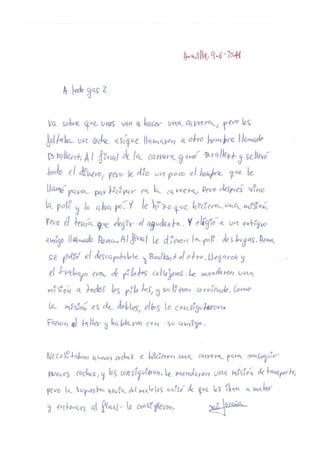 Armilla, 9-6-2011
A todo gas 2
Va sobre que unos van a hacer una carrera, pero les
faltaba un coche asique llamaron a otro hombre llamado
Braillent. Al final de la carrera ganó Braillent y se llevó
todo el dinero, pero le dio un poco el hombre que le
llamó para participar en la carrera. Pero después vino
la poli y lo atrapó. Y le hizo que hiciera una misión,
Pero él tenía que elegir el ayudante. Y eligió a un antiguo
amigo llamado Roman. Al final le dieron la poli dos bugas. Roman
se pidió el descapotable y Braillent el otro. Llegaron y
el trabajo era de pilotos callejeros. Le mandaron una
misión a todos los pilotos, y salieron corriendo. Como
la misión es de dobles, ellos lo consiguieron.
Fueron al taller y hablaron con su amigo.
Necesitaban nuevos coches e hicieron una carrera para conseguir
nuevos coches, y los consiguieron. Le mandaron una misión de transporte,
pero la supuesta novia del maleles avisó de que les iban a matar
y entonces al final lo consiguieron.